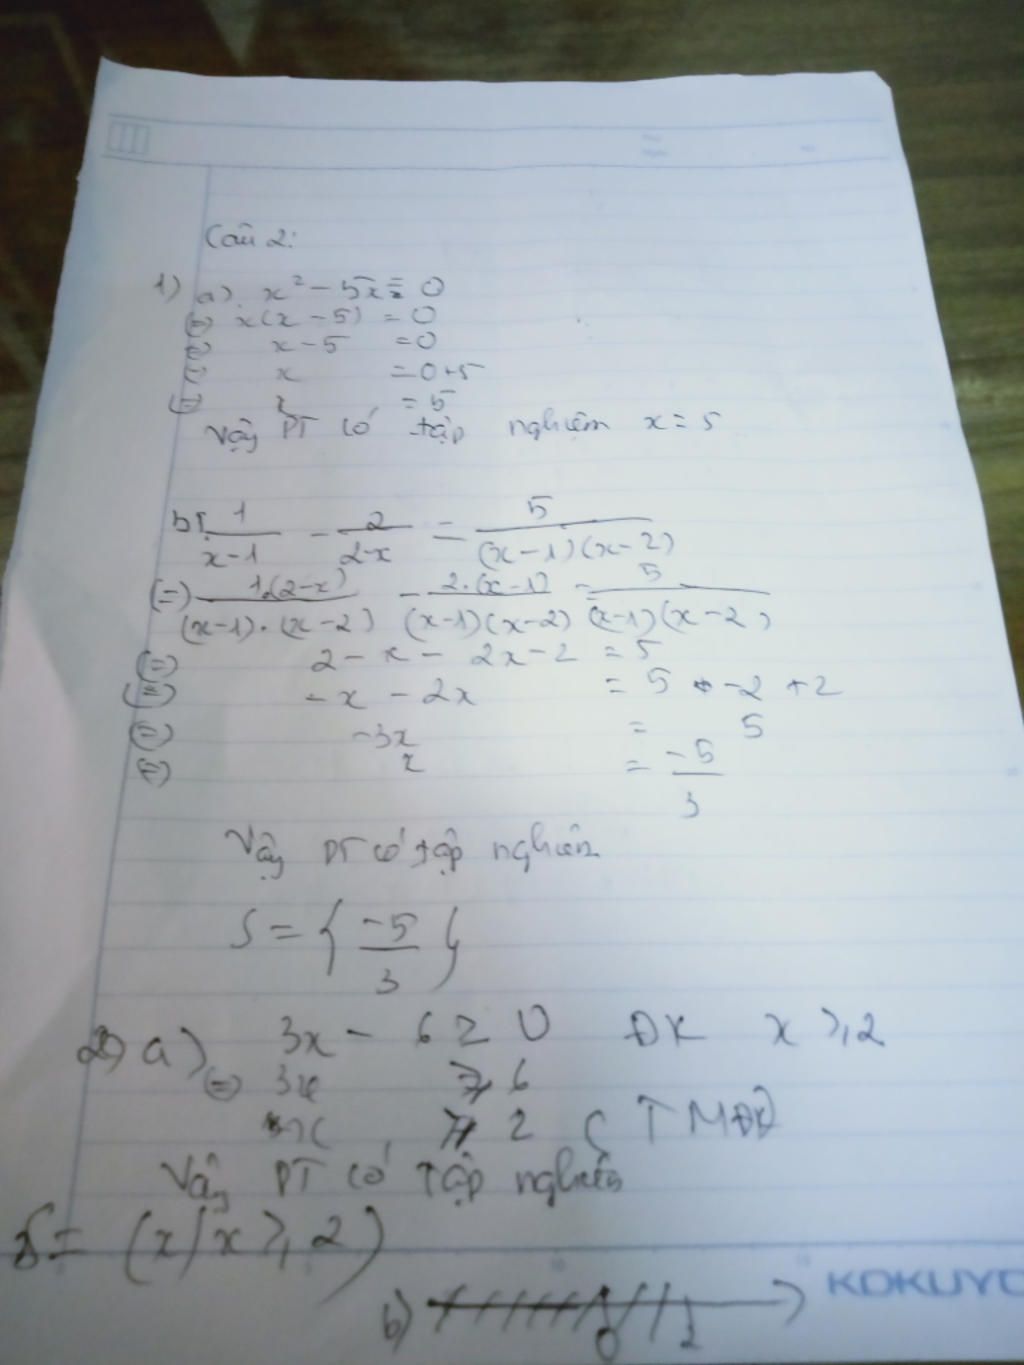 Câu 2:
1) a) x² - 5x = 0
(=) x(x - 5) = 0
(=) x - 5 = 0
(=) x = 0+5
(=) x = 5
Vậy PT có tập nghiệm x = 5
b) 1/(x-1) - 2/(2-x) = 5/((x-1)(x-2))
(=) 1.(2-x)/((x-1).(x-2)) - 2.(x-1)/((x-1)(x-2)) = 5/((x-1)(x-2))
(=) 2 - x - 2x - 2 = 5
(=) - x - 2x = 5 -2 +2
(=) -3x = 5
(=) x = -5/3
Vậy PT có tập nghiệm
S = { -5/3 }
2) a) 3x - 6 ≥ 0 ĐK x ≥ 2
(=) 3x ≥ 6
x ≥ 2 ( TMĐK)
Vậy PT có tập nghiệm
S = (x/x ≥ 2)
KOKUYO
b) 0 2